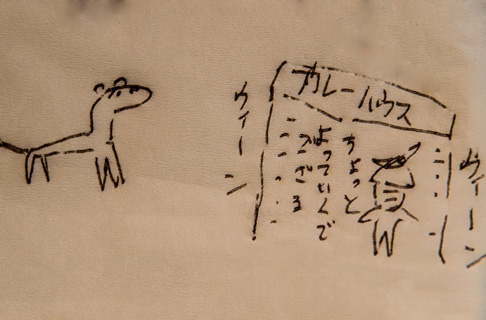 カレーハウス
ウィーン
ちょっと
よっていくで
ござる
ウィーン